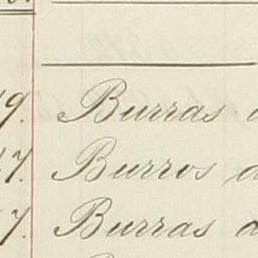 9. Burras
7. Burros
7. Burras